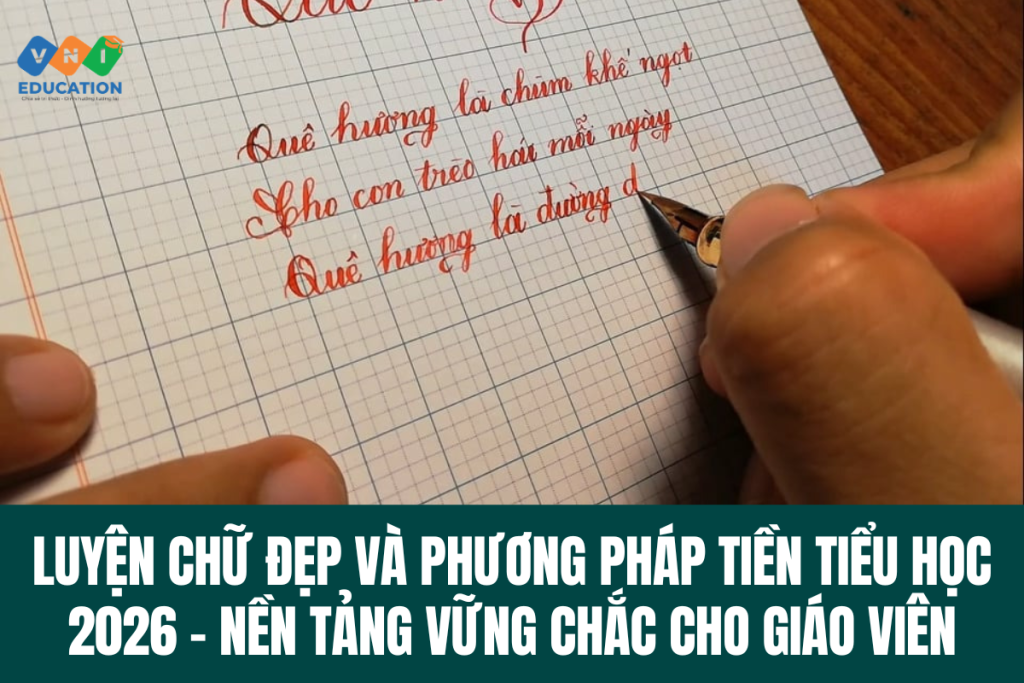 VNI
EDUCATION
Quê hương là chùm khế ngọt
Cho con trèo hái mỗi ngày
Quê hương là đường đ
LUYỆN CHỮ ĐẸP VÀ PHƯƠNG PHÁP TIỀN TIỂU HỌC
2026 - NỀN TẢNG VỮNG CHẮC CHO GIÁO VIÊN